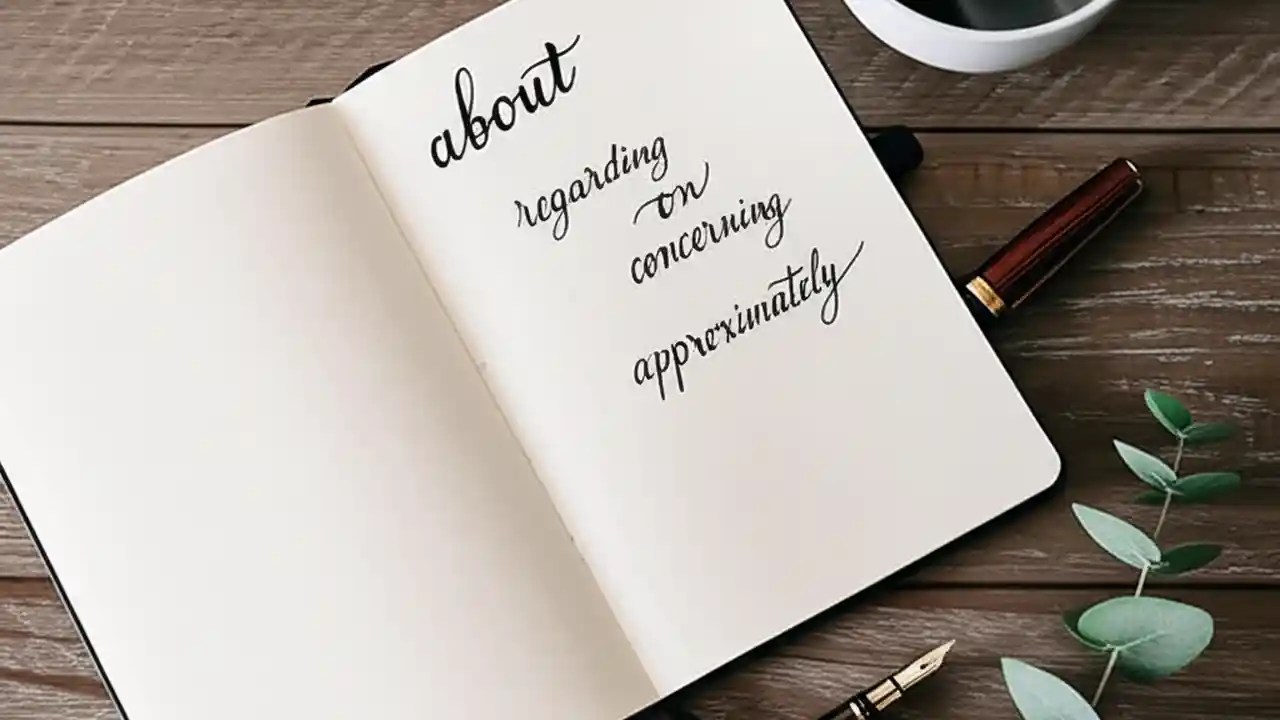 about
regarding
on
concerning
approximately